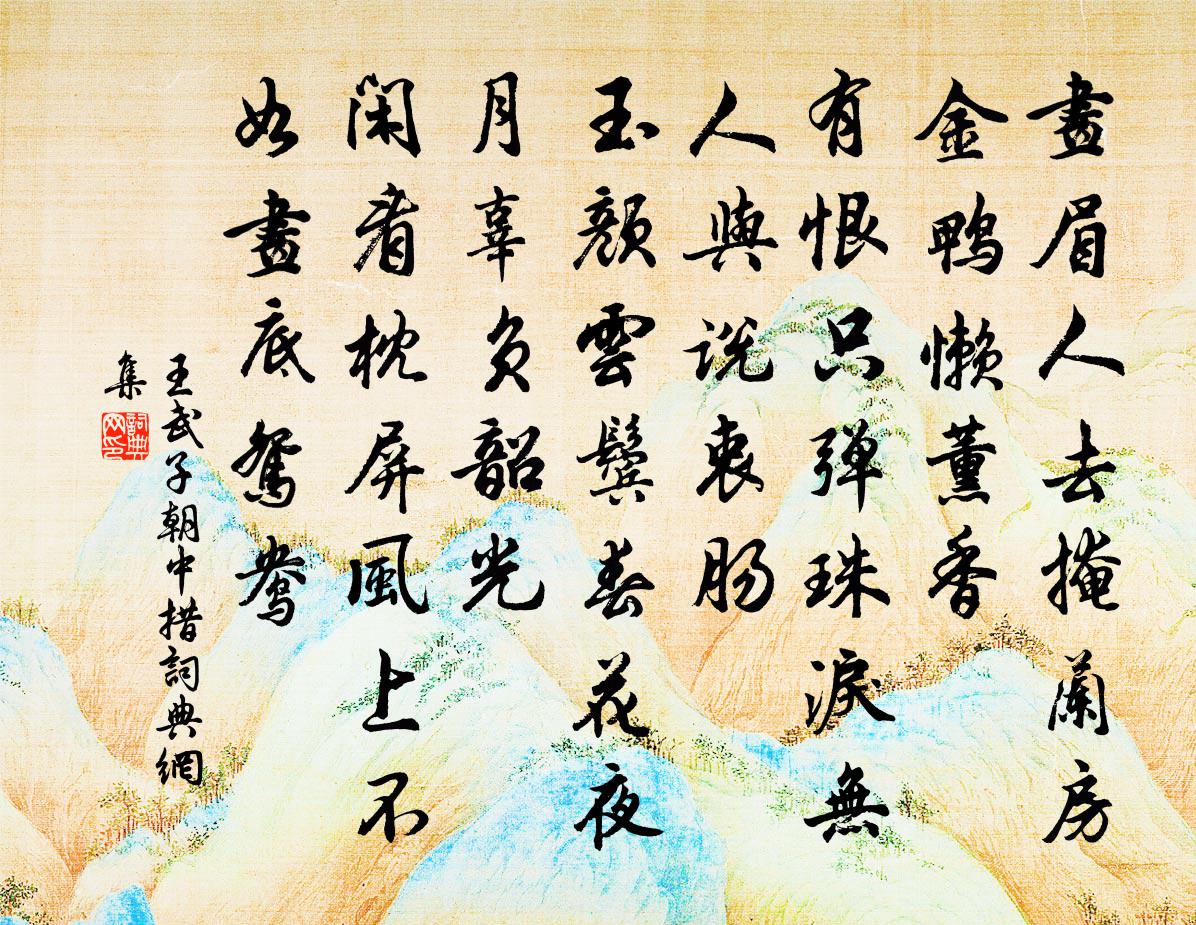 畫眉人去掩蘭房
金鴨懶薰香
有恨只弹珠淚無
人與説衷肠
玉顔雲鬓春花夜
月辜負韶光
闲看枕屏風上不
如畫底鴛鴦
王武子朝中措詞典網
集
詞典
网印